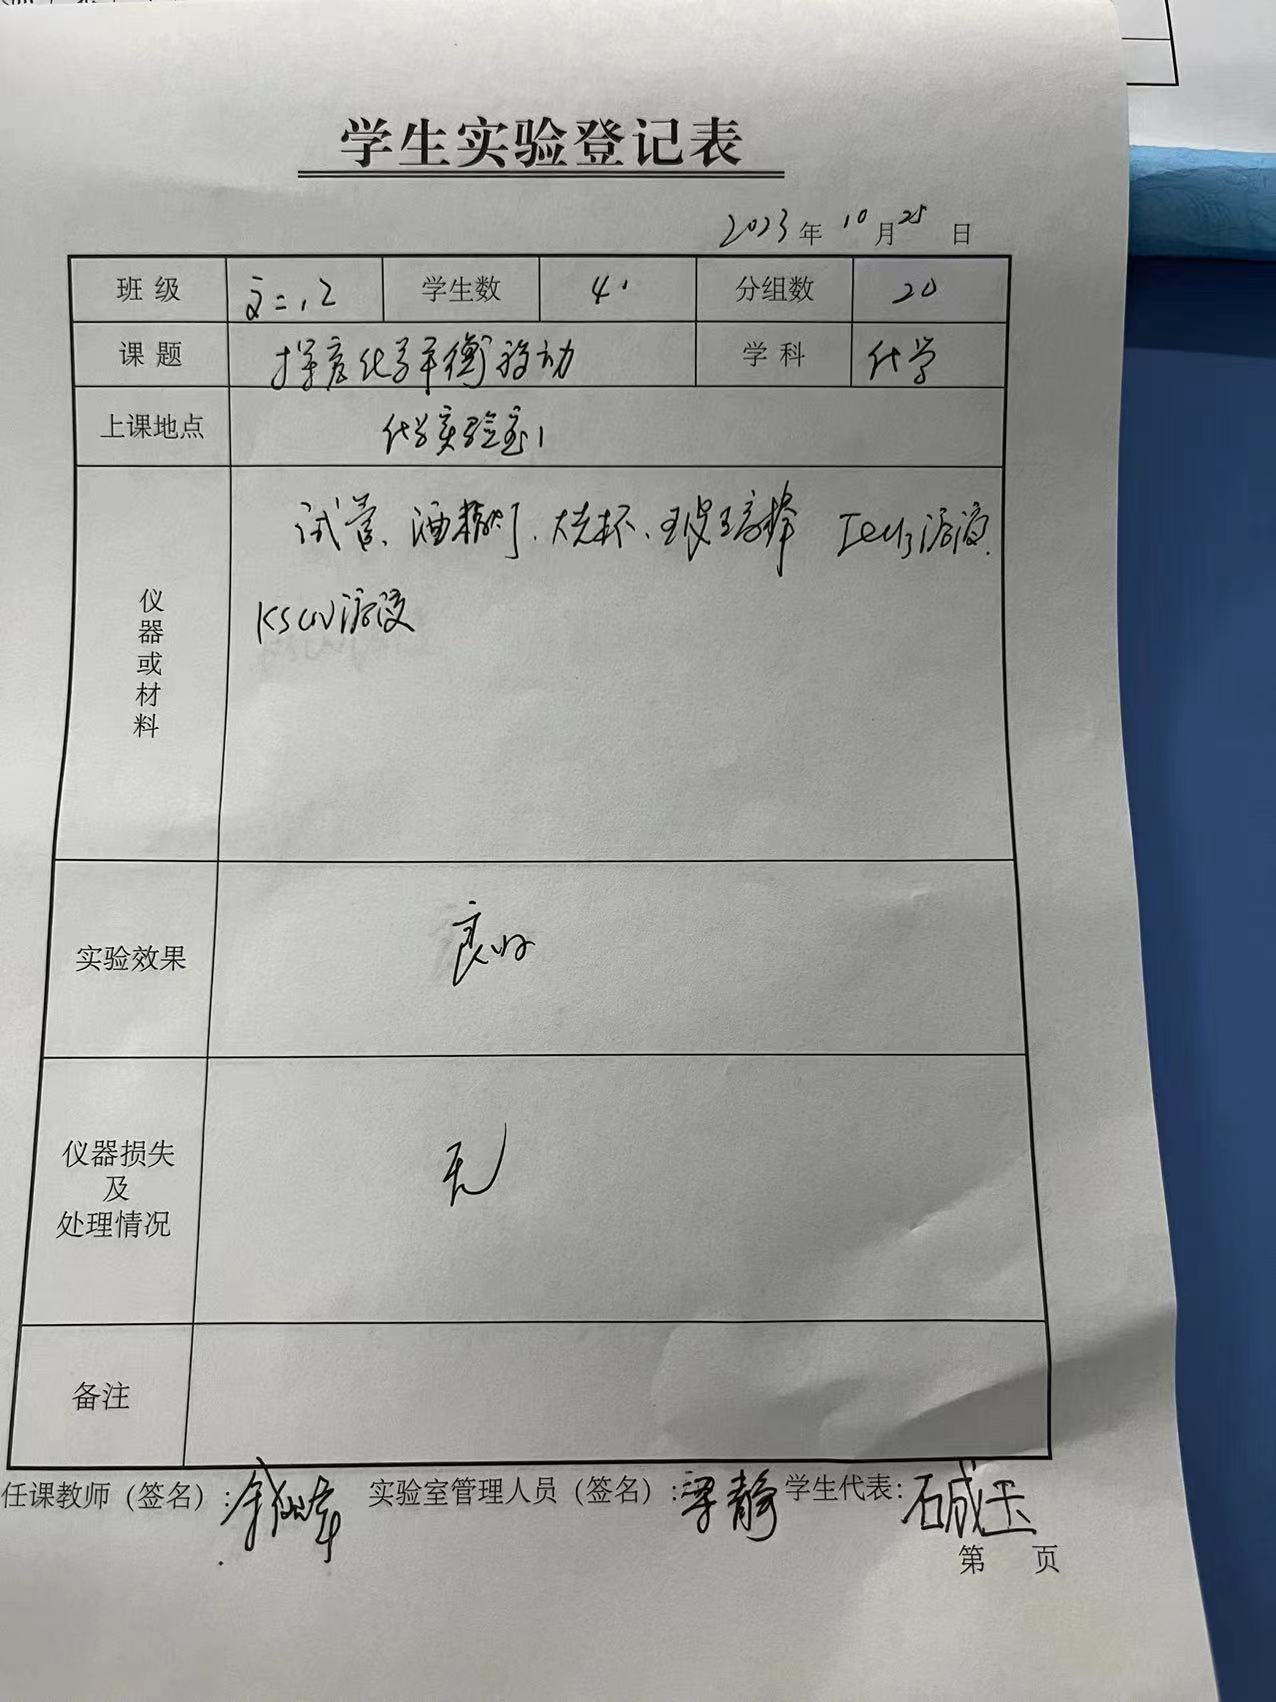 学生实验登记表
2023年10月25日
班级 高二.12 学生数 41 分组数 20
课题 探究化学平衡移动 学科 化学
上课地点 化学实验室1
仪器或材料 试管、酒精灯、烧杯、玻璃棒 FeCl3溶液、
KSCN溶液
实验效果 良好
仪器损失
及
处理情况 无
备注
任课教师（签名）： 实验室管理人员（签名）：梁静 学生代表：
第 页